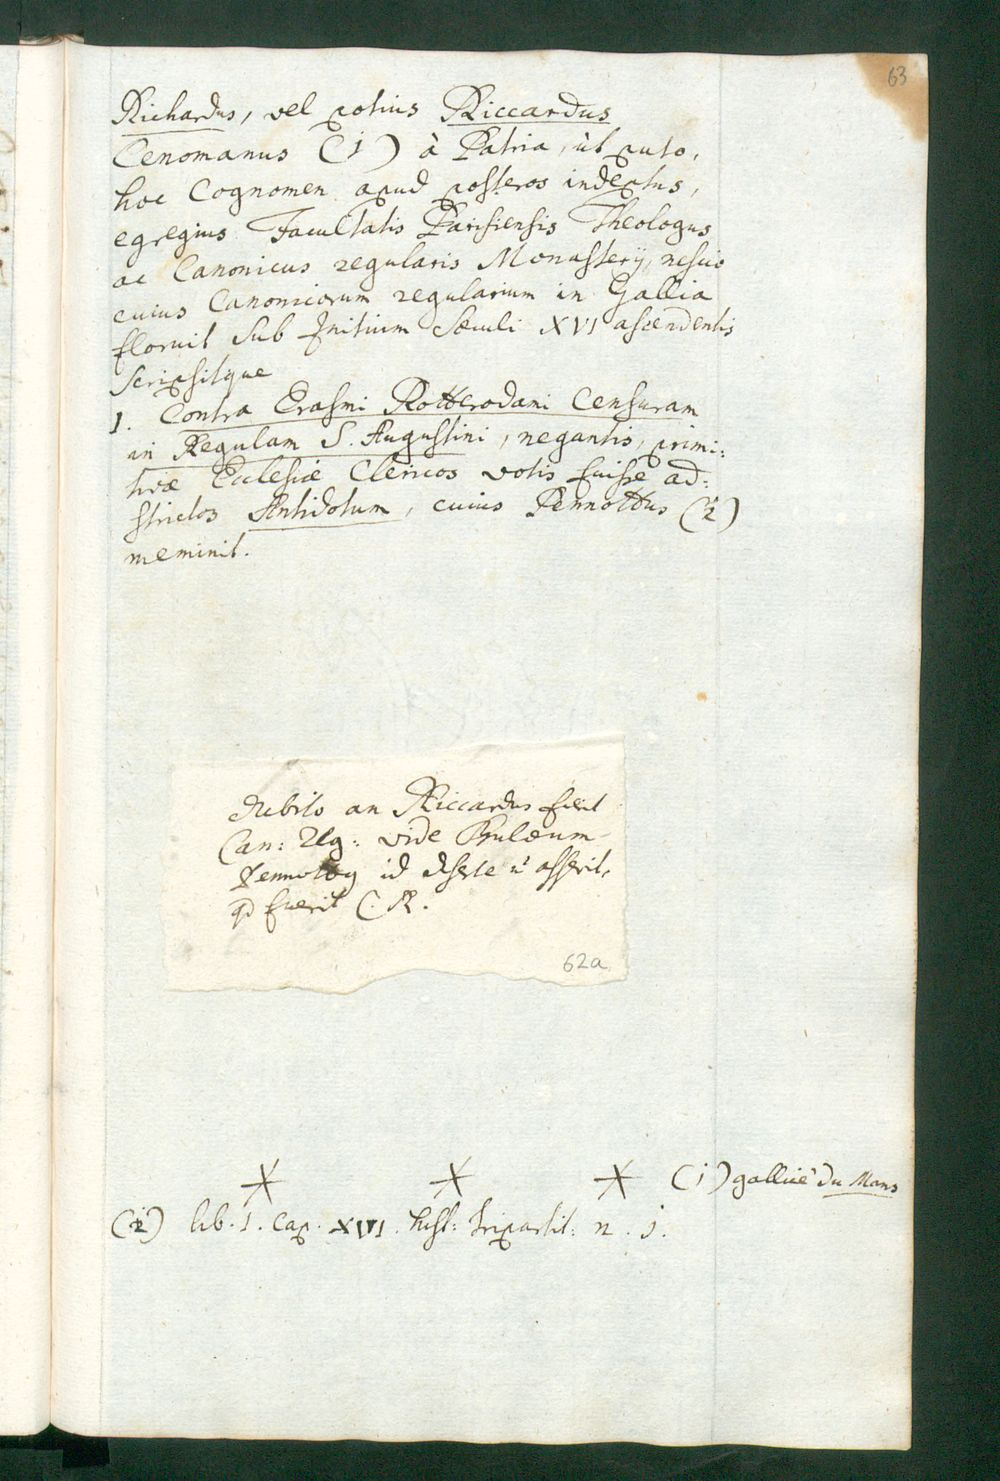 63
Richardus, vel potius Riccardus
Cenomanus (1) à Patria, ùt puto,
hoc Cognomen apud posteros indeptus,
egregius Facultatis Parisiensis Theologus
ac Canonicus regularis Monasterij, nescio
cuius Canonicorum regularium in Gallia
floruit sub Initium Sæculi XVI ascendentis
scripsitque
1. Contra Erasmi Rotterodami Censuram
in Regulam S. Augustini, negantis, primi:
tivæ Ecclesiæ Clericos votis fuisse ad:
strictos Antidotum, cuius Pennottus (2)
meminit.
Dubito an Riccardus fuerit
Can: Reg: vide Bulæum
id diserte asserit,
qd fuerit C. R.
62a
(1) gallicè du Mans
(2) lib. 1. Cap. XVI. hist: tripartit: n. 1.